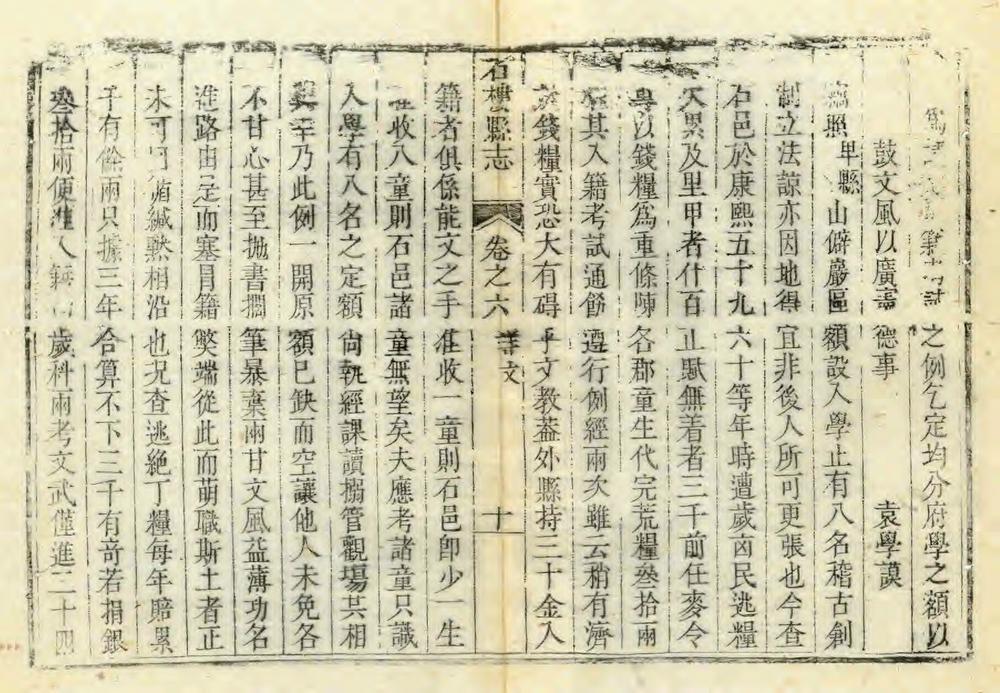 為請籍之例乞定均分府學之額以
鼓文風以廣需德事 袁學謨
照卑縣山僻巖區額設入學止有八名稽古創
制立法諒亦因地得宜非後人所可更張也今查
石邑於康熙五十九六十等年時遭歲凶民逃糧
欠累及里甲者什百止賦無着者三千前任麥令
學以錢糧爲重條陳各郡童生代完荒糧叁拾兩
准其入籍考試通飭遵行例經兩次雖云稍有濟
於錢糧實恐大有碍乎文教葢外縣持三十金入
石樓縣志 卷之六 詳文 十
籍者俱係能文之手准收一童則石邑卽少一生
准收八童則石邑諸童無望矣夫應考諸童只識
入學有八名之定額尙執經課讀搦管觀塲其相
冀幸乃此例一開原額已缺而空讓他人未免各
不甘心甚至拋書擱筆暴棄兩甘文風益薄功名
進路由是而塞冒籍獘端從此而萌職斯土者正
未可緘黙相沿也况查逃絶丁糧每年賠累
千有餘兩只據三年合算不下三千有竒若捐銀
叁拾兩便准入籍歲科兩考文武僅進二十四